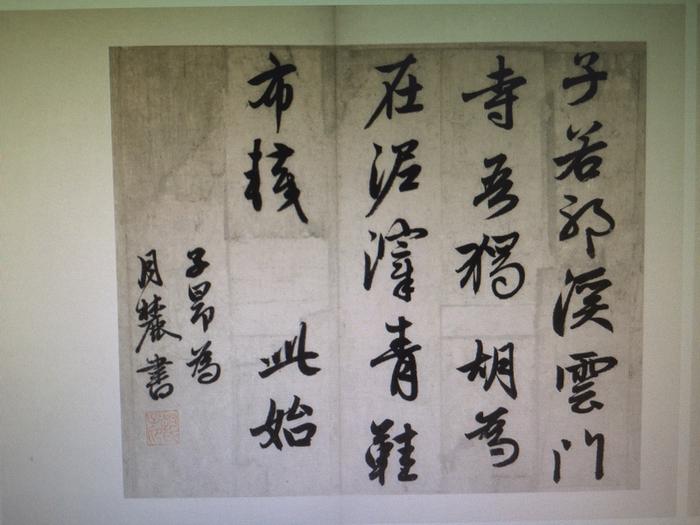 子若邪溪雲門
寺吾獨胡為
在泥滓青鞋
布襪此始
子昂為
月麓書